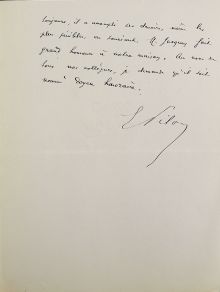 toujours, il a accompli ces devoirs, même les
plus pénibles, en souriant. M. Jacques fait
grand honneur à notre maison. Au nom de
tous nos collègues, je demande qu'il soit
nommé Doyen honoraire.